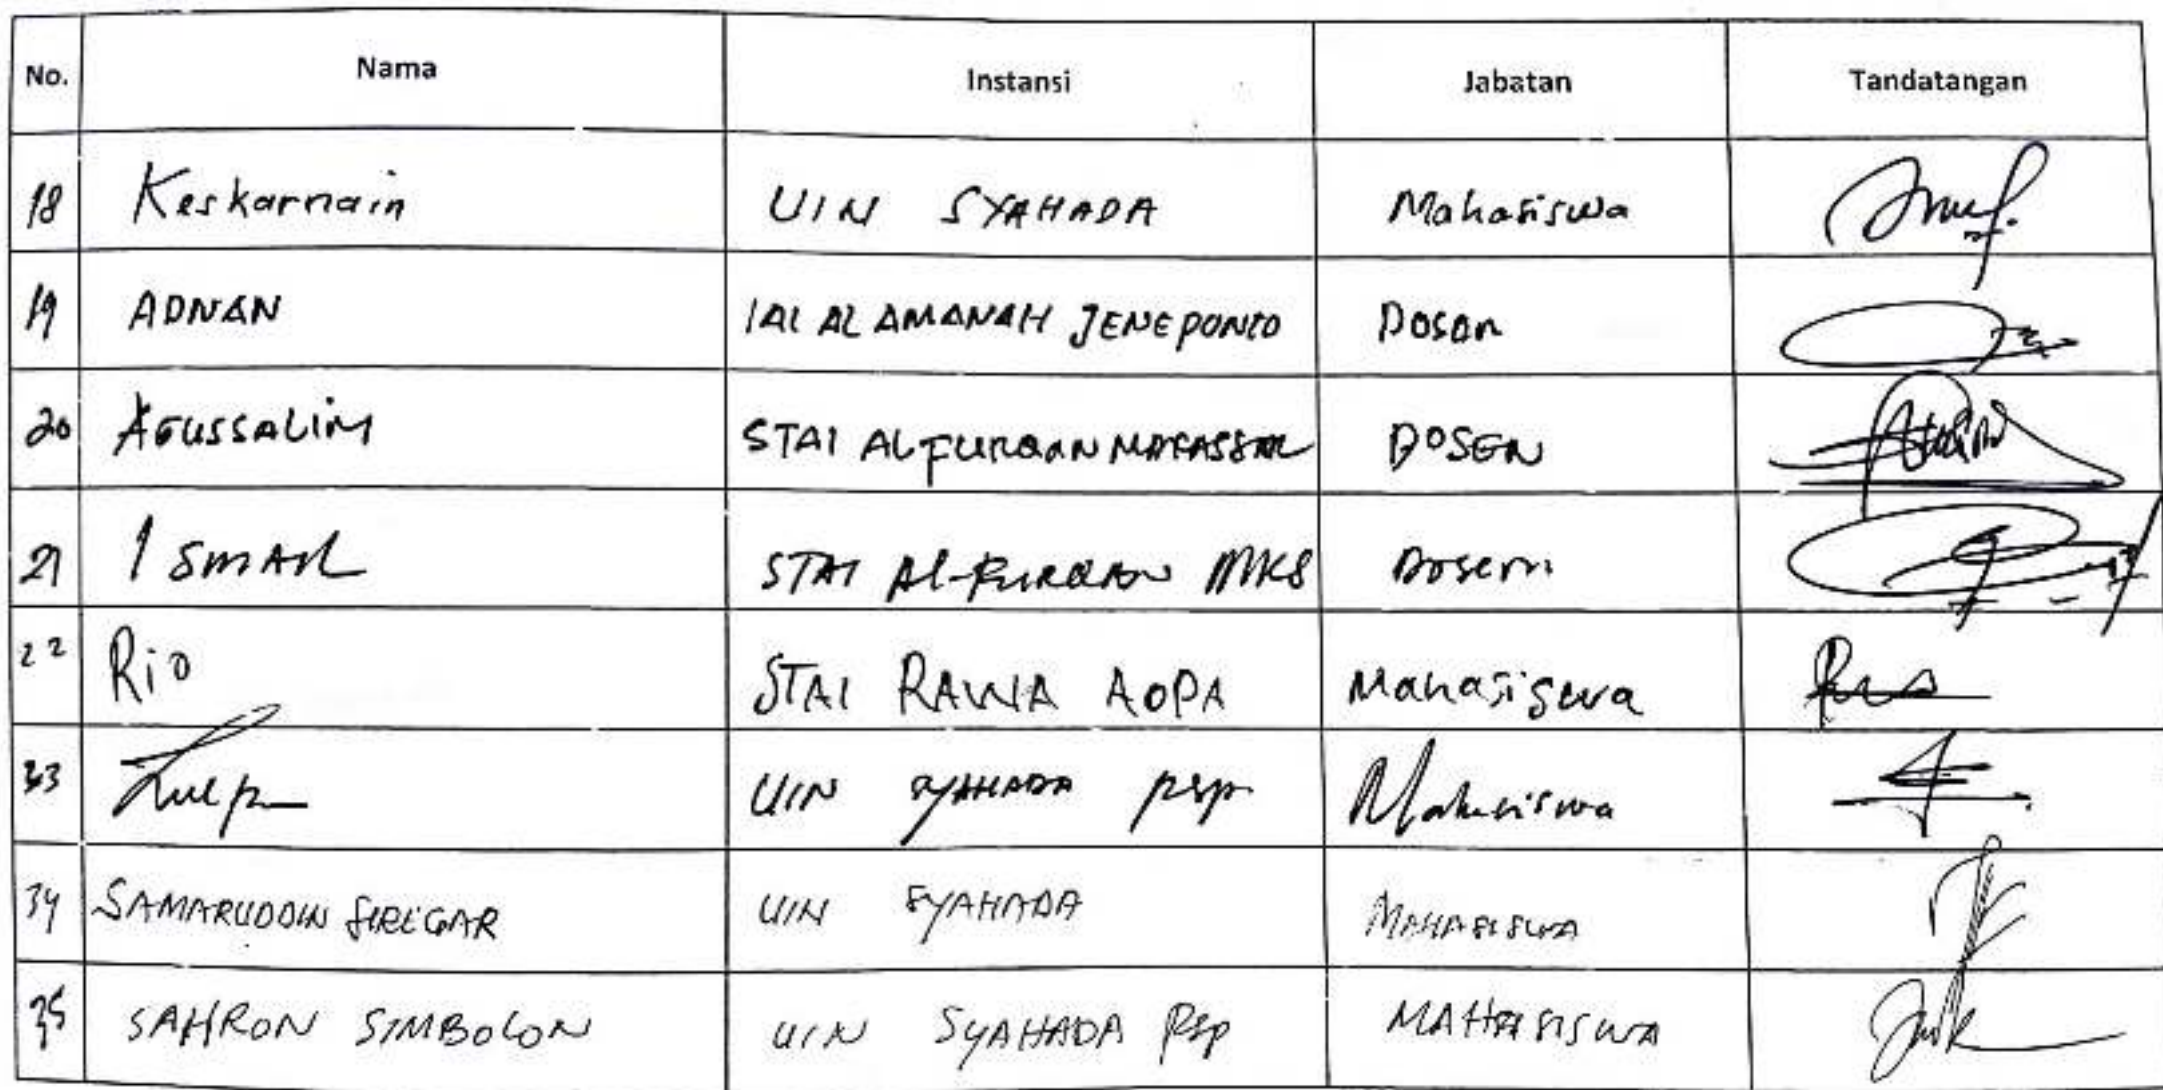 No. Nama Instansi Jabatan Tandatangan
18 Keskarnain UIN SYAHADA Mahasiswa
19 ADNAN IAI AL AMANAH JENEPONTO Dosen
20 AGUSSALIM STAI AL FURQAN MAKASSAR DOSEN
21 ISMAIL STAI Al-FURQAN MKS Dosen
22 Rio STAI RAWA AOPA Mahasiswa
UIN SYAHADA PSP Mahasiswa
34 SAMARUDDIN SIREGAR UIN SYAHADA MAHASISWA
35 SAHRON SIMBOLON UIN SYAHADA PSP MAHASISWA